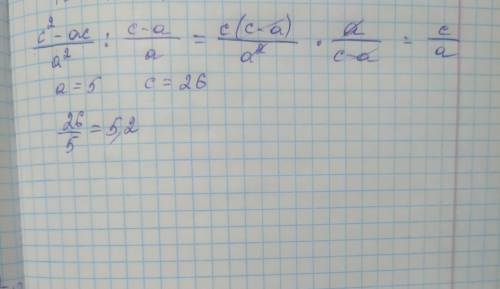 (c² - ac)/a² : (c - a)/a = c(c - a)/a² · a/(c - a) = c/a
a = 5 c = 26
26/5 = 5,2